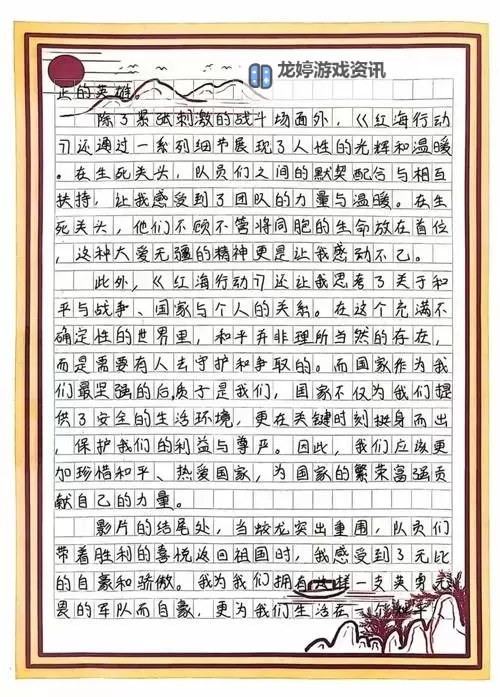 龙婷游戏资讯
止的英雄。
除了紧张刺激的战斗场面外，《红海行动
》还通过一系列细节展现了人性的光辉和温暖
。在生死关头，队员们之间的默契配合与相互
扶持，让我感受到了团队的力量与温暖。在生
死关头，他们不顾不管将同胞的生命放在首位
，这种大爱无疆的精神更是让我感动不已。
此外，《红海行动》还让我思考了关于和
平与战争、国家与个人的关系。在这个充满不
确定性的世界里，和平并非理所当然的存在，
而是需要有人去守护和争取的。而国家作为我
们最坚强的后盾于是我们，国家不仅为我们提
供了安全的生活环境，更在关键时刻挺身而出
，保护我们的利益与尊严。因此，我们应该更
加珍惜和平、热爱国家，为国家的繁荣富强贡
献自己的力量。
影片的结尾处，当蛟龙突出重围，队员们
带着胜利的喜悦返回祖国时，我感受到了无比
的自豪和骄傲。我为我们拥有这样一支英勇无
畏的军队而自豪，更为我们生活在一个和平